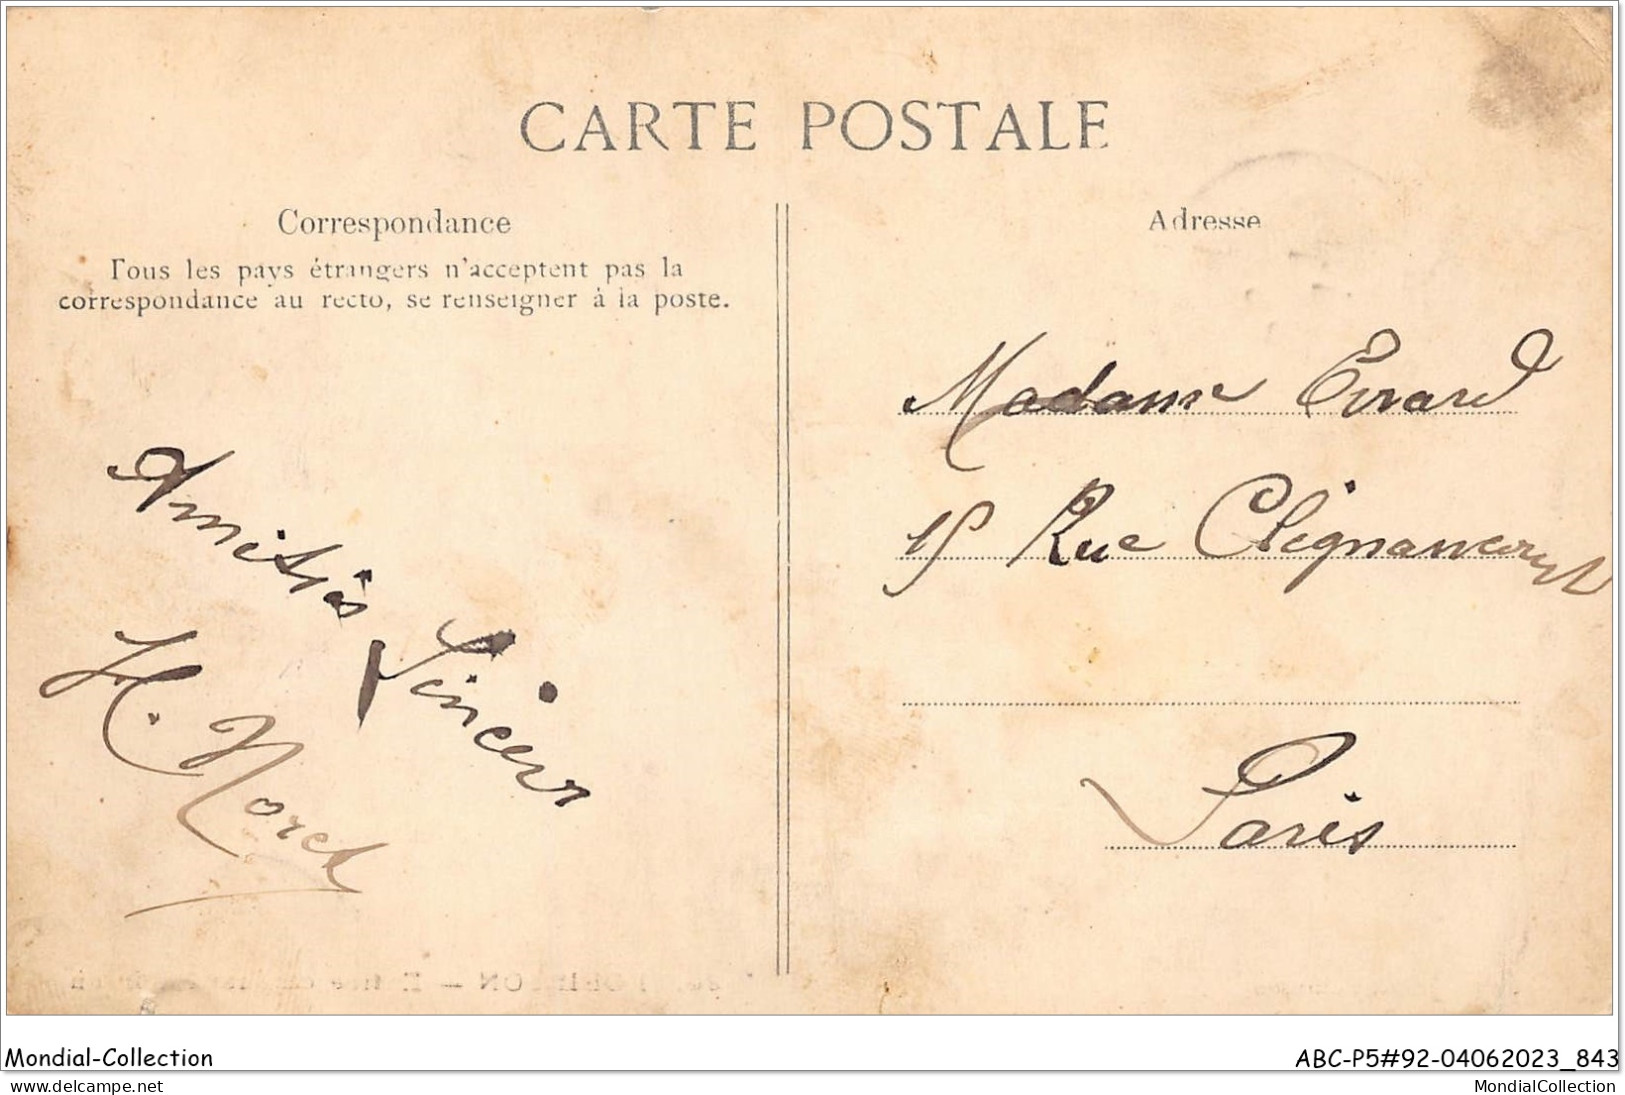 CARTE POSTALE
Correspondance
Tous les pays étrangers n'acceptent pas la
correspondance au recto, se renseigner à la poste.
Amitiés Sincères
H. Noret
Adresse
Madame Evrard
15 Rue Clignancourt
Paris
Mondial-Collection
ABC-P5#92-04062023_843
www.delcampe.net
MondialCollection